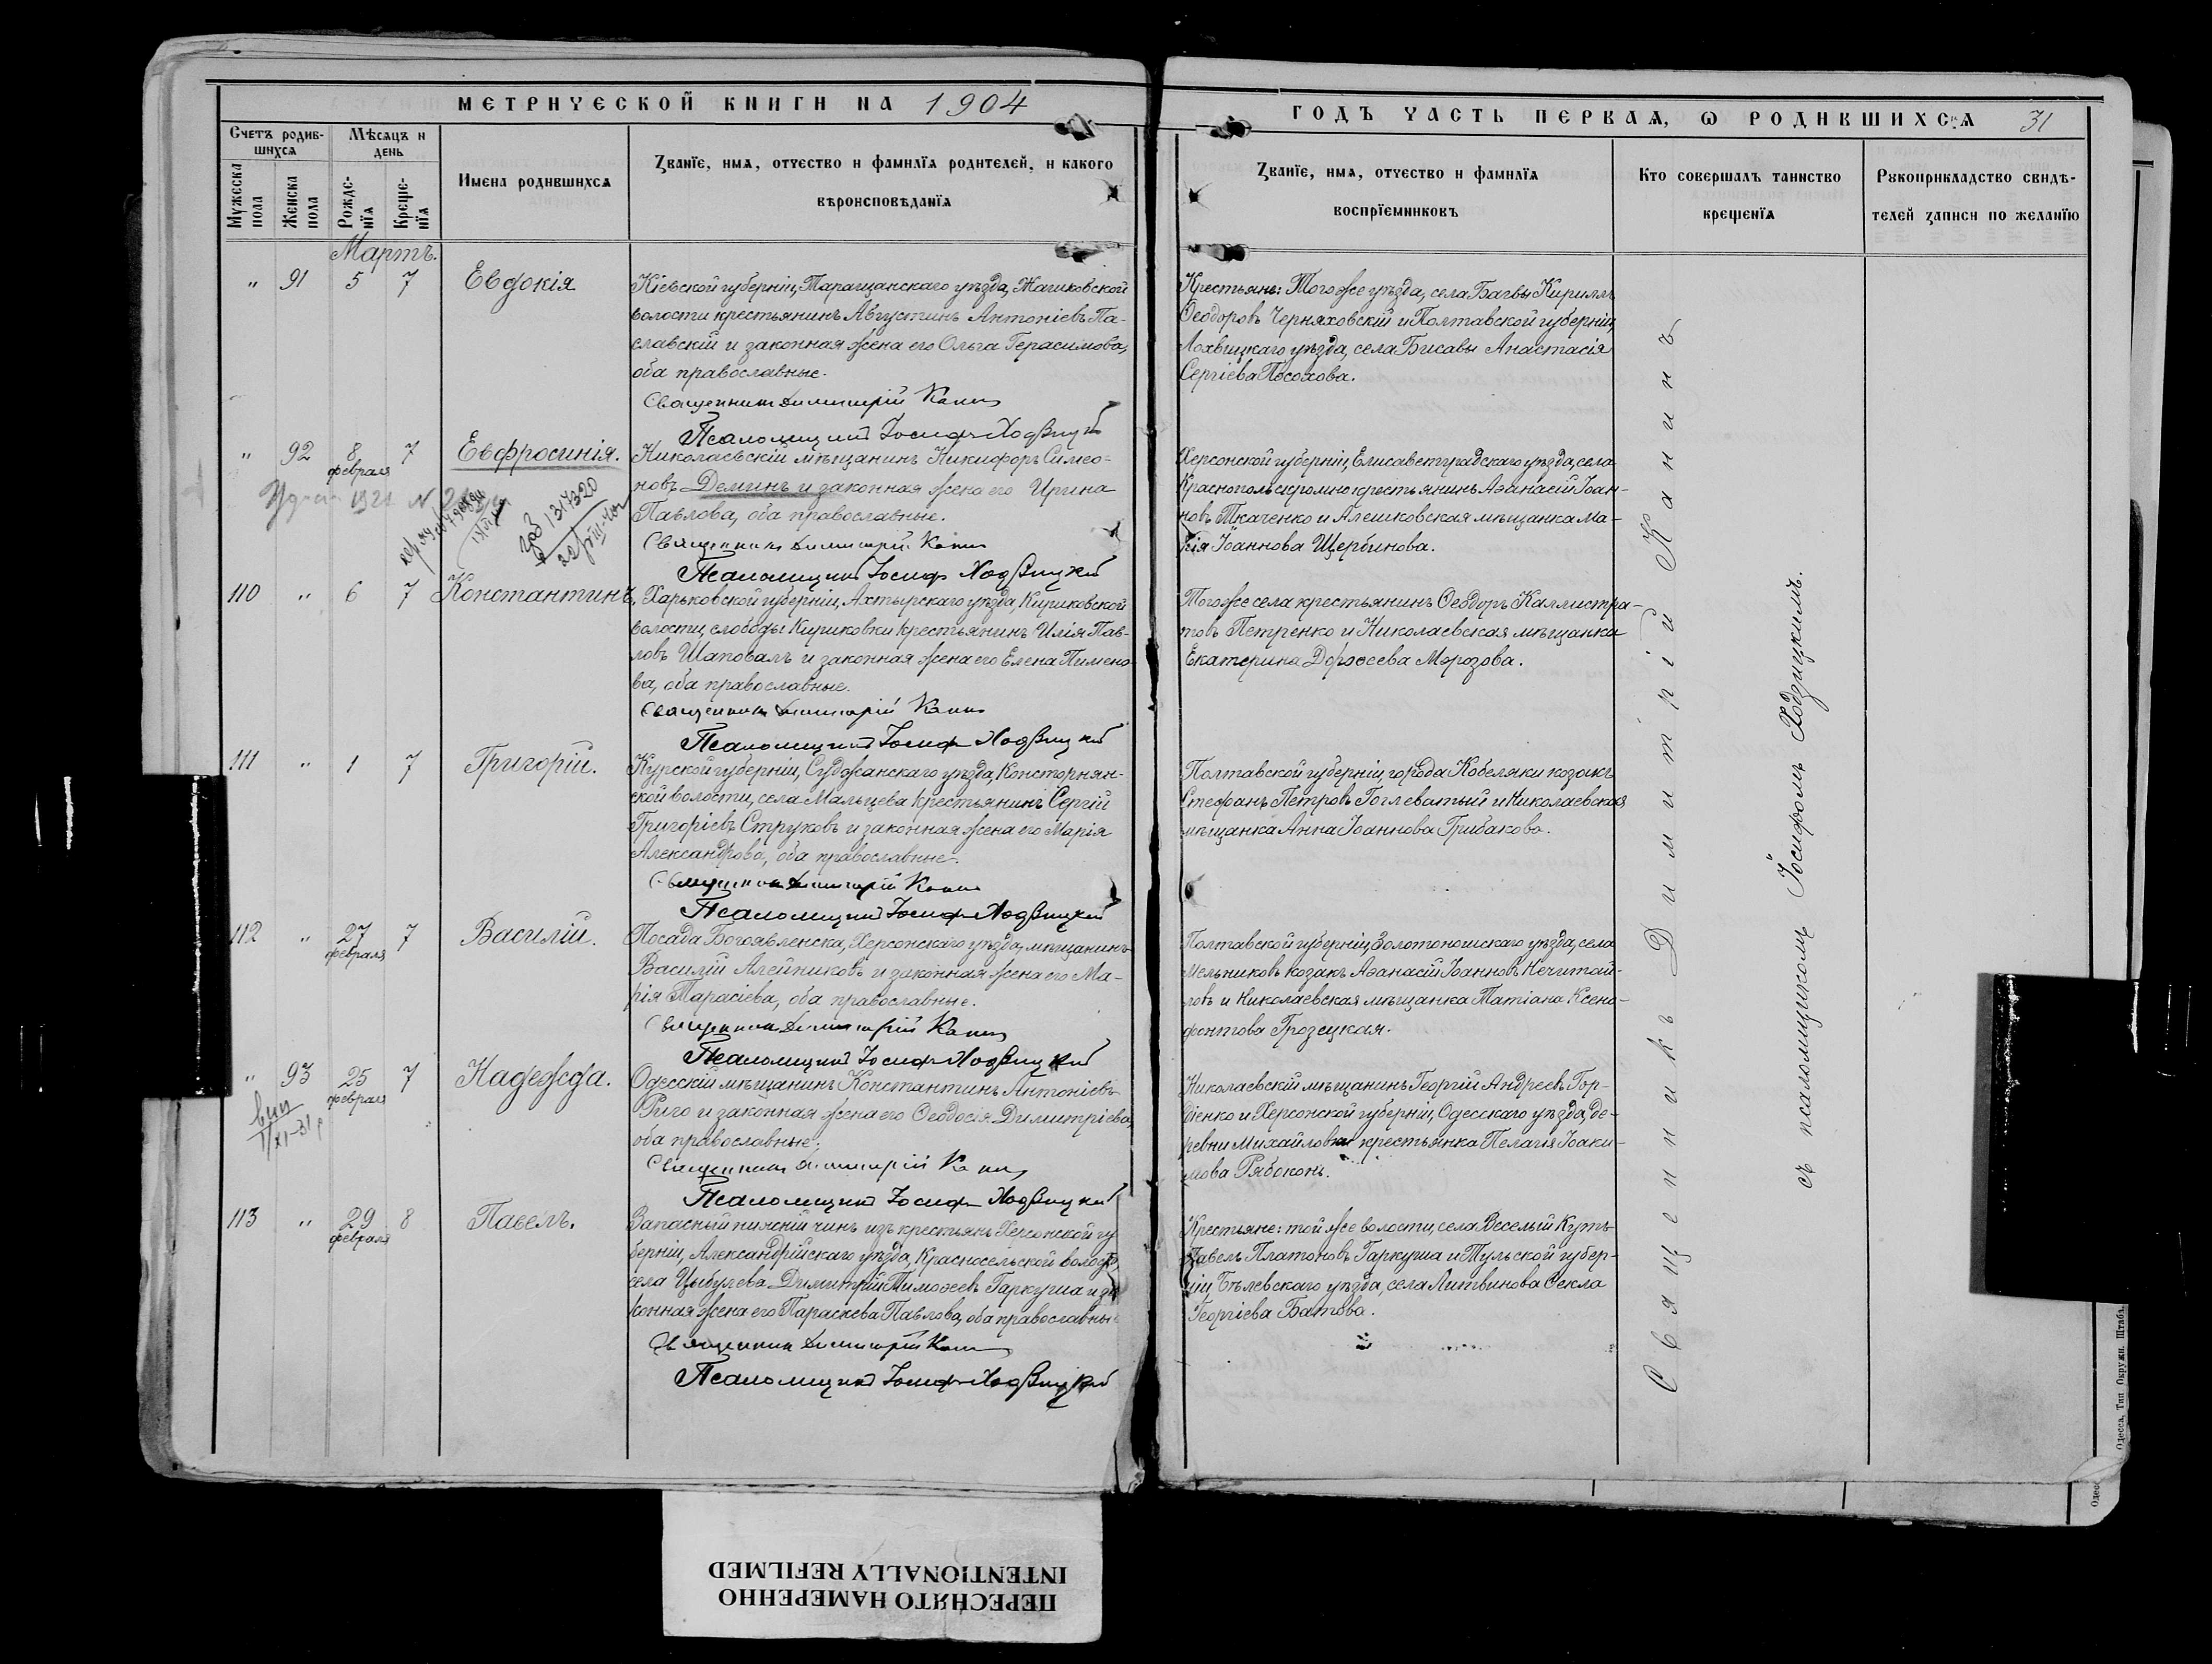 МЕТРИЧЕСКОЙ КНИГИ НА 1904
Счетъ родив-
шихся
Мѣсяцъ и
день
Мужеска
пола
Женска
пола
Рожде-
нія
Креще-
нія
Имена родившихся
Званїе, имя, отчество и фамилїя родителей, и какого
вѣроисповѣданїя
Мартъ.
" 91 5 7 Евдокія
Кіевской губерніи, Таращанскаго уѣзда, Жашковской
волости крестьянинъ Августинъ Антоніевъ Па-
славскій и законная жена его Ольга Герасимова,
оба православные.
Священникъ Димитрій Канинъ
Псаломщикъ Іосифъ Ходзицкій
" 92 8 февраля 7 Евфросинія.
Николаевскій мѣщанинъ Никифоръ Симео-
новъ Деминъ и законная жена его Ирина
Павлова, оба православные.
Священникъ Димитрій Канинъ
Псаломщикъ Іосифъ Ходзицкій
1317320
110 " 6 7 Константинъ.
Харьковской губерніи, Ахтырскаго уѣзда, Кириковской
волости, слободы Кириковки крестьянинъ Илія Пав-
ловъ Шаповалъ и законная жена его Елена Пимено-
ва, оба православные.
Священникъ Димитрій Канинъ
Псаломщикъ Іосифъ Ходзицкій
111 " 1 7 Григорій.
Курской губерніи, Суджанскаго уѣзда,
ской волости, села Мальцева крестьянинъ Сергій
Григоріевъ Струковъ и законная жена его Марія
Александрова, оба православные.
Священникъ Димитрій Канинъ
Псаломщикъ Іосифъ Ходзицкій
112 " 27 февраля 7 Василій.
Посада Богоявленска, Херсонскаго уѣзда, мѣщанинъ
Василій Алейниковъ и законная жена его Ма-
рія Тарасіева, оба православные.
Священникъ Димитрій Канинъ
Псаломщикъ Іосифъ Ходзицкій
" 93 25 февраля 7 Надежда.
Одесскій мѣщанинъ Константинъ Антоніевъ
Риго и законная жена его Ѳеодосія Димитріева,
оба православные.
Священникъ Димитрій Канинъ
Псаломщикъ Іосифъ Ходзицкій
113 " 29 февраля 8 Павелъ.
Запасный нижній чинъ изъ крестьянъ Херсонской гу
берніи, Александрійскаго уѣзда, Красносельской волости,
села Цыбулева Димитрій Тимоѳеевъ Гаркуша и за
конная жена его Параскева Павлова, оба православные
Священникъ Димитрій Канинъ
Псаломщикъ Іосифъ Ходзицкій
ГОДЪ ЧАСТЬ ПЕРВАЯ, Ѡ РОДИВШИХСЯ 31
Званїе, имя, отчество и фамилїя
воспрїемниковъ
Кто совершалъ таинство
крещенїя
Рукоприкладство свидѣ-
телей записи по желанїю
Крестьяне: Тогоже уѣзда, села Багвы Кириллъ
Ѳеодоровъ Черняховскій и Полтавской губерніи,
Лохвицкаго уѣзда, села Бисавы Анастасія
Сергіева Посохова.
Херсонской губерніи, Елисаветградскаго уѣзда, села
крестьянинъ Аѳанасій Іоан-
новъ Ткаченко и Алешковская мѣщанка Ма-
рія Іоаннова Щербинова.
Тогоже села крестьянинъ Ѳеодоръ Каллистра-
товъ Петренко и Николаевская мѣщанка
Екатерина Дороѳеева Морозова.
Полтавской губерніи, города Кобеляки козакъ
Стефанъ Петровъ Гоглеватый и Николаевская
мѣщанка Анна Іоаннова Грибакова.
Полтавской губерніи, Золотоношскаго уѣзда, села
Мельниковъ козакъ Аѳанасій Іоанновъ Нечитай-
ловъ и Николаевская мѣщанка Татіана Ксено-
фонтова Грозецкая.
Николаевскій мѣщанинъ Георгій Андреевъ Гор-
діенко и Херсонской губерніи, Одесскаго уѣзда, де-
ревни Михайловки крестьянка Пелагія Іоаки-
мова Рябоконь.
Крестьяне: той же волости, села Веселый Кутъ
Павелъ Платоновъ Гаркуша и Тульской губер-
ніи, Бѣлевскаго уѣзда, села Литвинова Ѳекла
Георгіева Батова.
Священникъ Димитрій Канинъ
съ псаломщикомъ Іосифомъ Ходзицкимъ.
Одесса, Тип. Окружн. Штаба.
ПЕРЕСНЯТО НАМЕРЕННО
INTENTIONALLY REFILMED